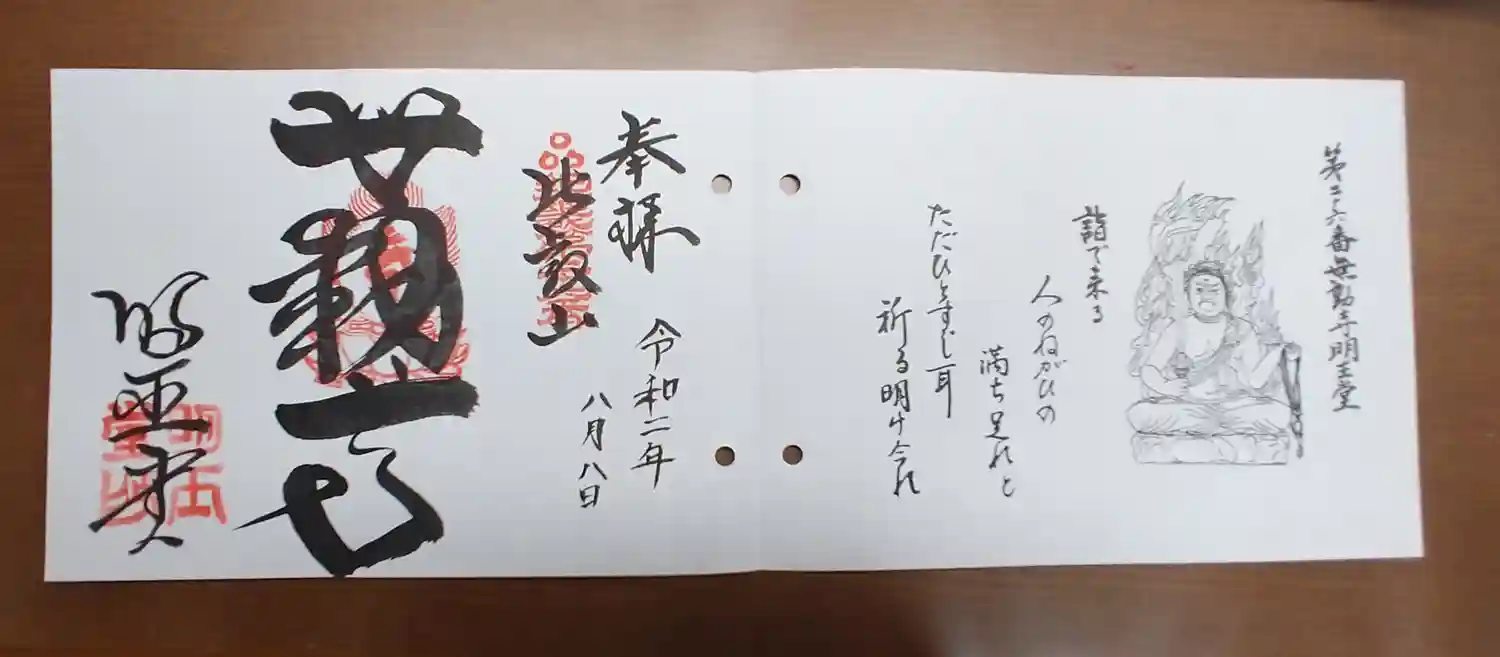 第二十六番無動寺明王堂
詣で来る
人のねがひの
満ち足れと
ただひとすじ耳
祈る明け
奉拝
令和二年
八月八日
比叡山
明王堂